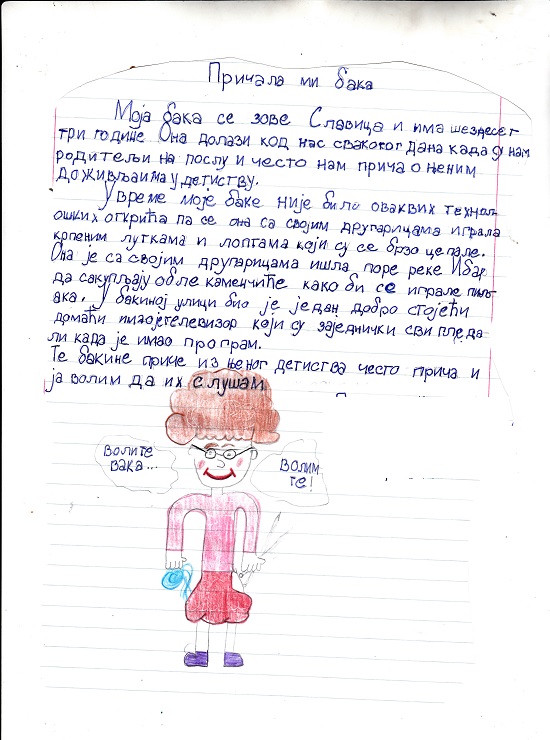 Причала ми бака
Моја бака се зове Славица и има шездесет
три године. Она долази код нас сваког дана када су нам
родитељи на послу и често нам прича о њеним
доживљаима у детиству.
У време моје баке није било оваквих технол
ошких открића па се она са својим другарицама играла
крпеним луткама и лоптама који су се брзо цепале.
Она је са својим другарицама ишла поре реке Ибар
да сакупљају обле каменчиће како би се играле пиљ
ака. У бакиној улици био је један добро стојећи
домаћи имао је телевизор који су заједнички сви гледа
ли када је имао програм.
Те бакине приче из њеног детиства често прича и
ја волим да их слушам
волите
вака...
волим
те!